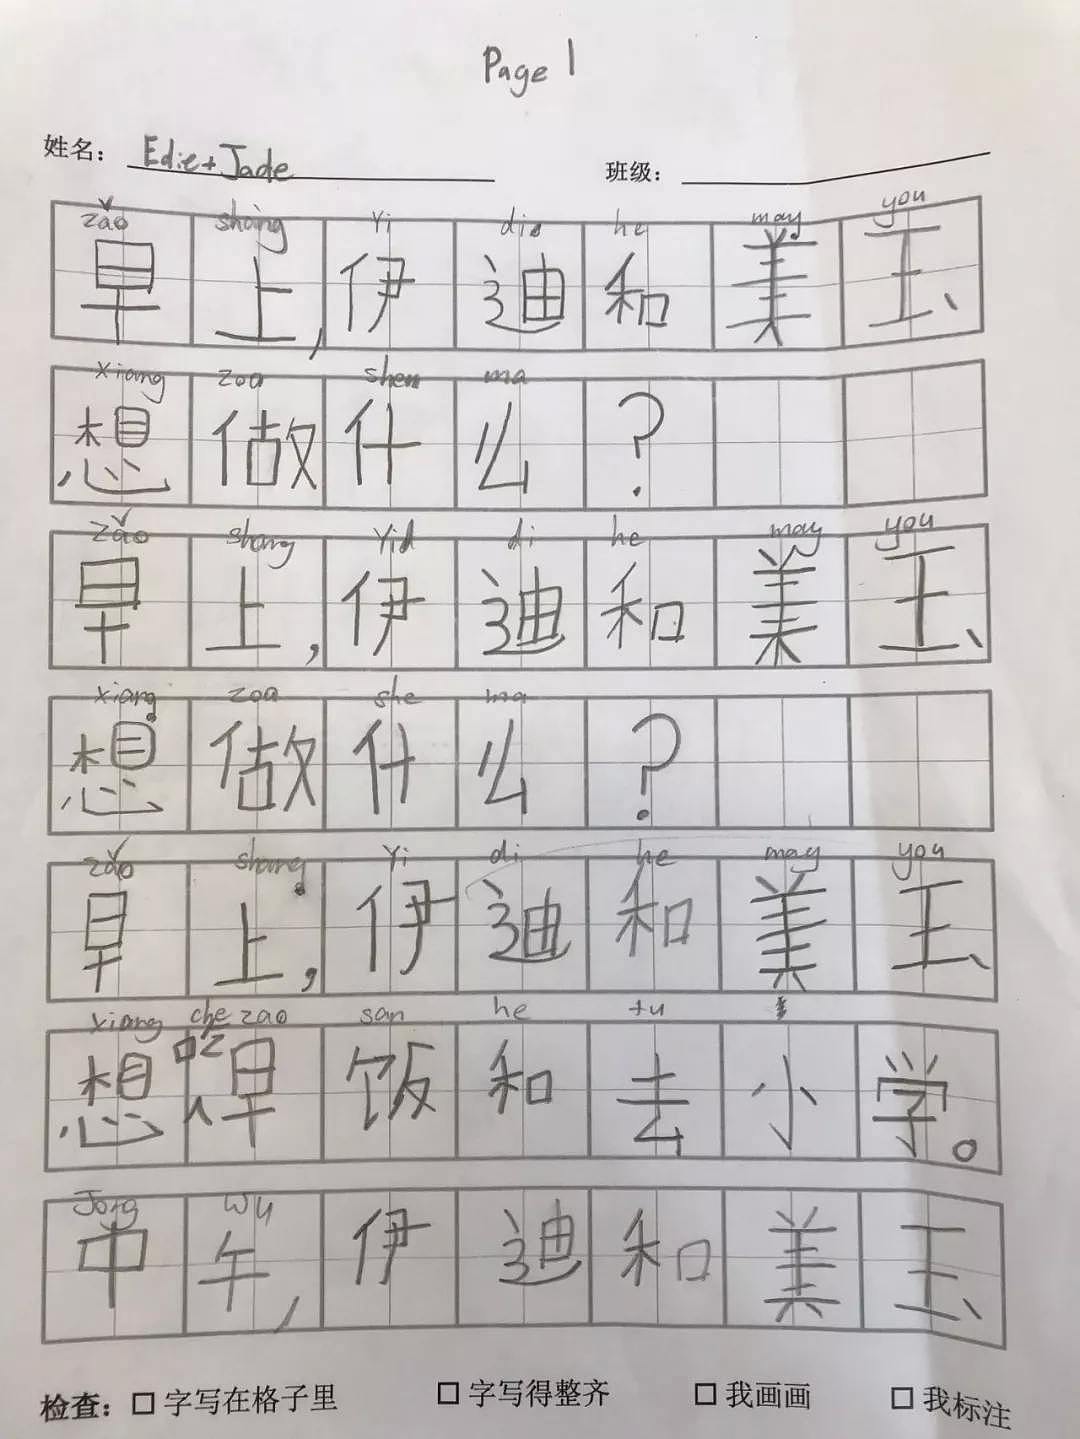 Page 1
姓名： Edie + Jade 班级：
zǎo shàng Yi die he may you
早上，伊迪和美玉
xiang zoo shen ma
想做什么？
zǎo shang Yid di he may you
早上，伊迪和美玉
xiang zoa she ma
想做什么？
zǎo shang Yi di he may you
早上，伊迪和美玉
xiang che zao san he tu
想吃早饭和去小学。
Jong wu
中午，伊迪和美玉
检查： □ 字写在格子里 □ 字写得整齐 □ 我画画 □ 我标注